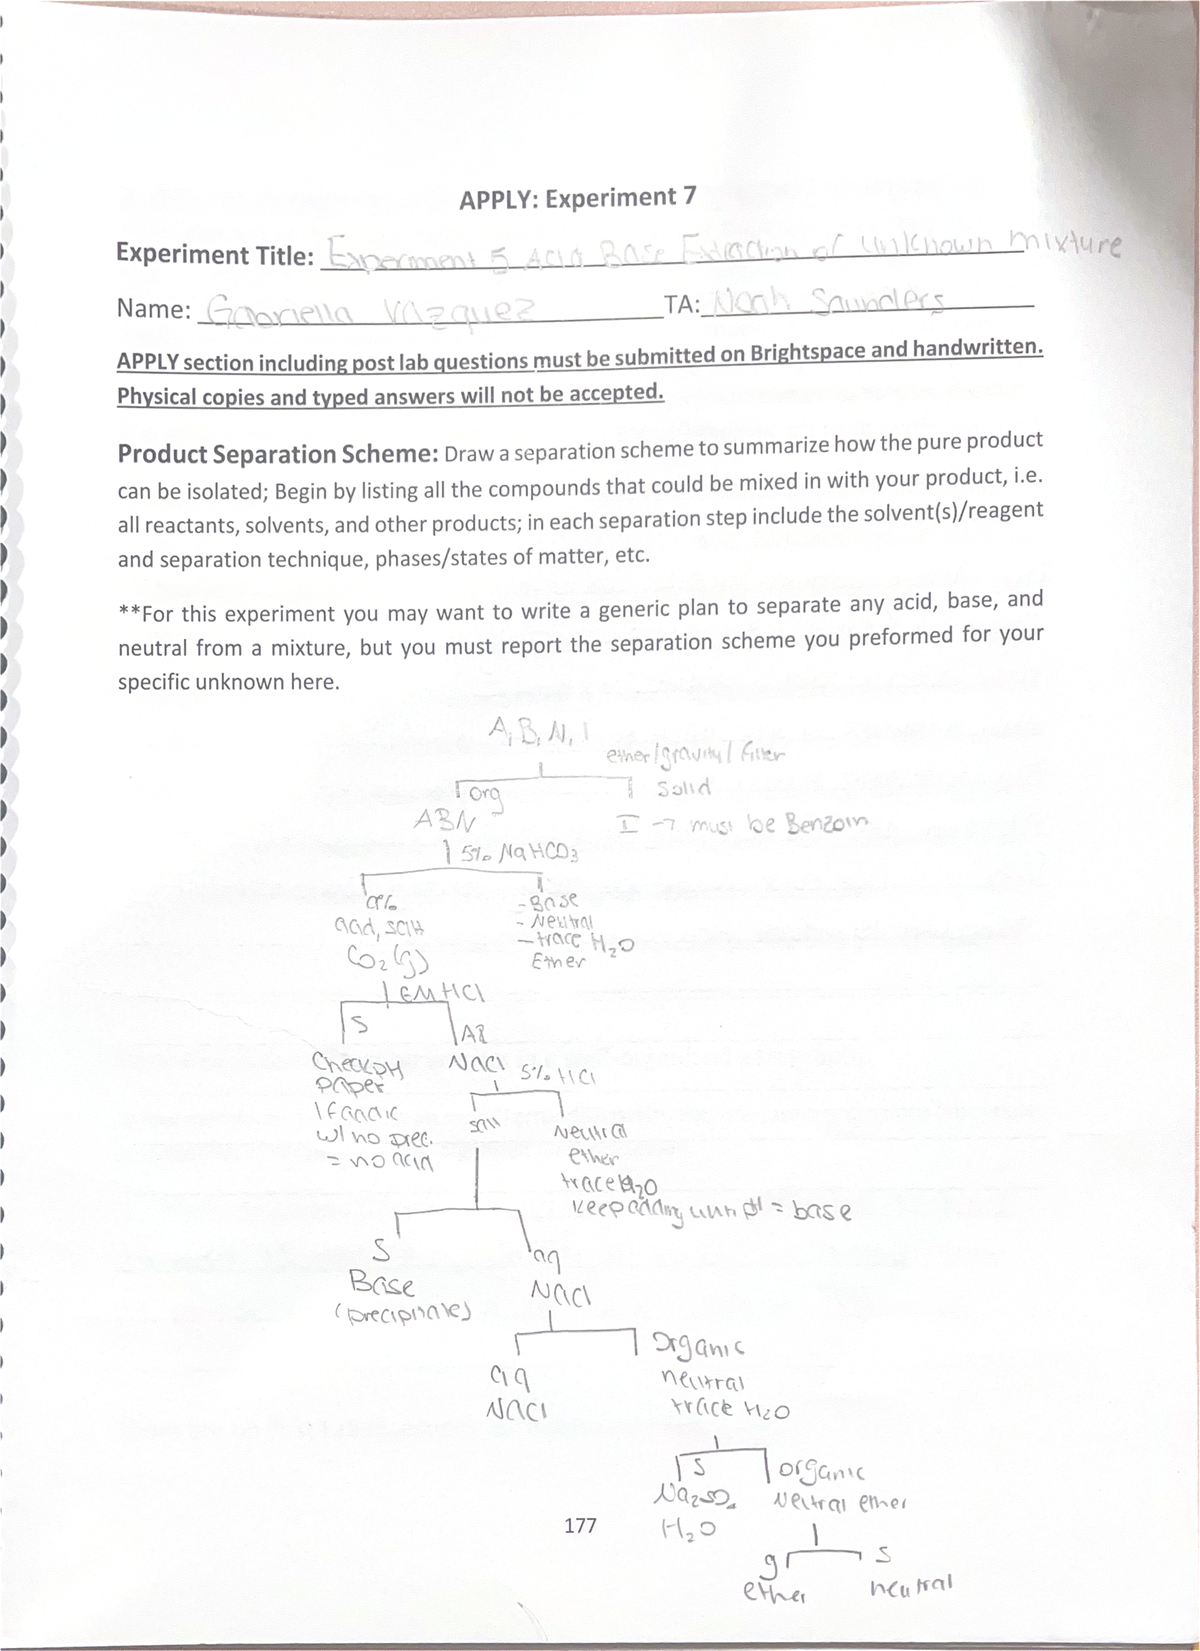 APPLY: Experiment 7
Experiment Title: Experiment 5 Acid Base Extraction of Unknown mixture
Name: Gabriella Vazquez TA: Noah Saunders
APPLY section including post lab questions must be submitted on Brightspace and handwritten.
Physical copies and typed answers will not be accepted.
Product Separation Scheme: Draw a separation scheme to summarize how the pure product
can be isolated; Begin by listing all the compounds that could be mixed in with your product, i.e.
all reactants, solvents, and other products; in each separation step include the solvent(s)/reagent
and separation technique, phases/states of matter, etc.
**For this experiment you may want to write a generic plan to separate any acid, base, and
neutral from a mixture, but you must report the separation scheme you preformed for your
specific unknown here.
A, B, N, I
ether/gravity/filter
org
solid
ABN
I → must be Benzoin
5% NaHCO3
- Base
acid, salt
- Neutral
- trace H2O
CO2(g)
Ether
HCl
S
AQ
Check pH
NaCl
5% HCl
paper
w/ no prec.
= no acid
salt
Neutral
ether
trace H2O
keep adding until pH = base
S
aq
Base
NaCl
(precipitate)
Organic
aq
neutral
NaCl
trace H2O
S
organic
Na2SO4
Neutral ether
H2O
177
g
S
ether
neutral